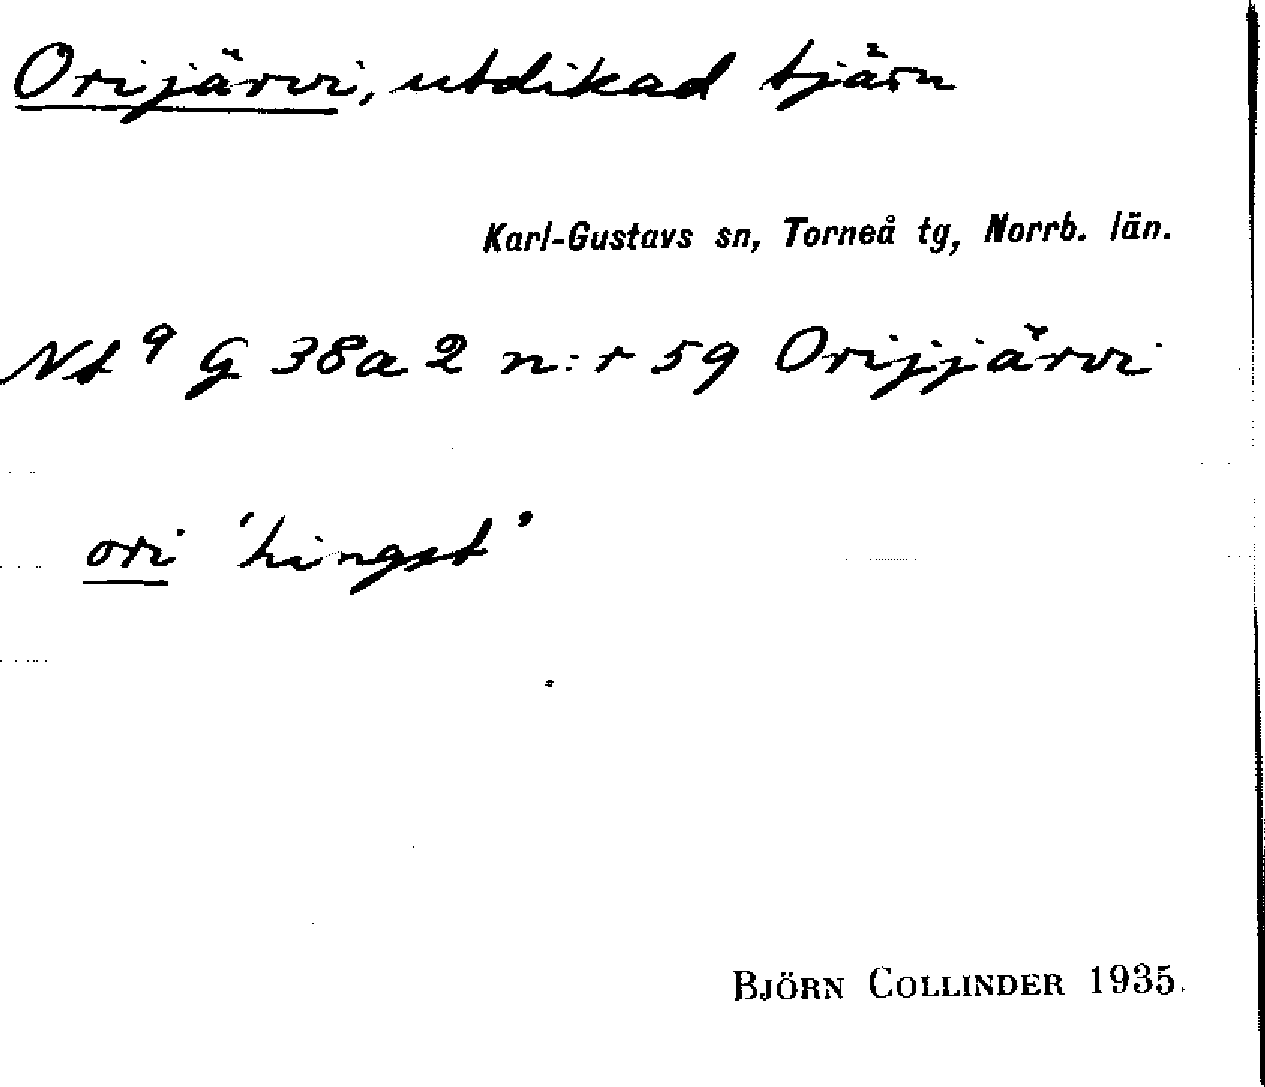 Orijärvi, utdikad tjärn
Karl-Gustavs sn, Torneå tg, Norrb. län.
Nt 9 G 38a 2 n:r 59 Orijjärvi
ori 'hingst'
BJÖRN COLLINDER 1935.